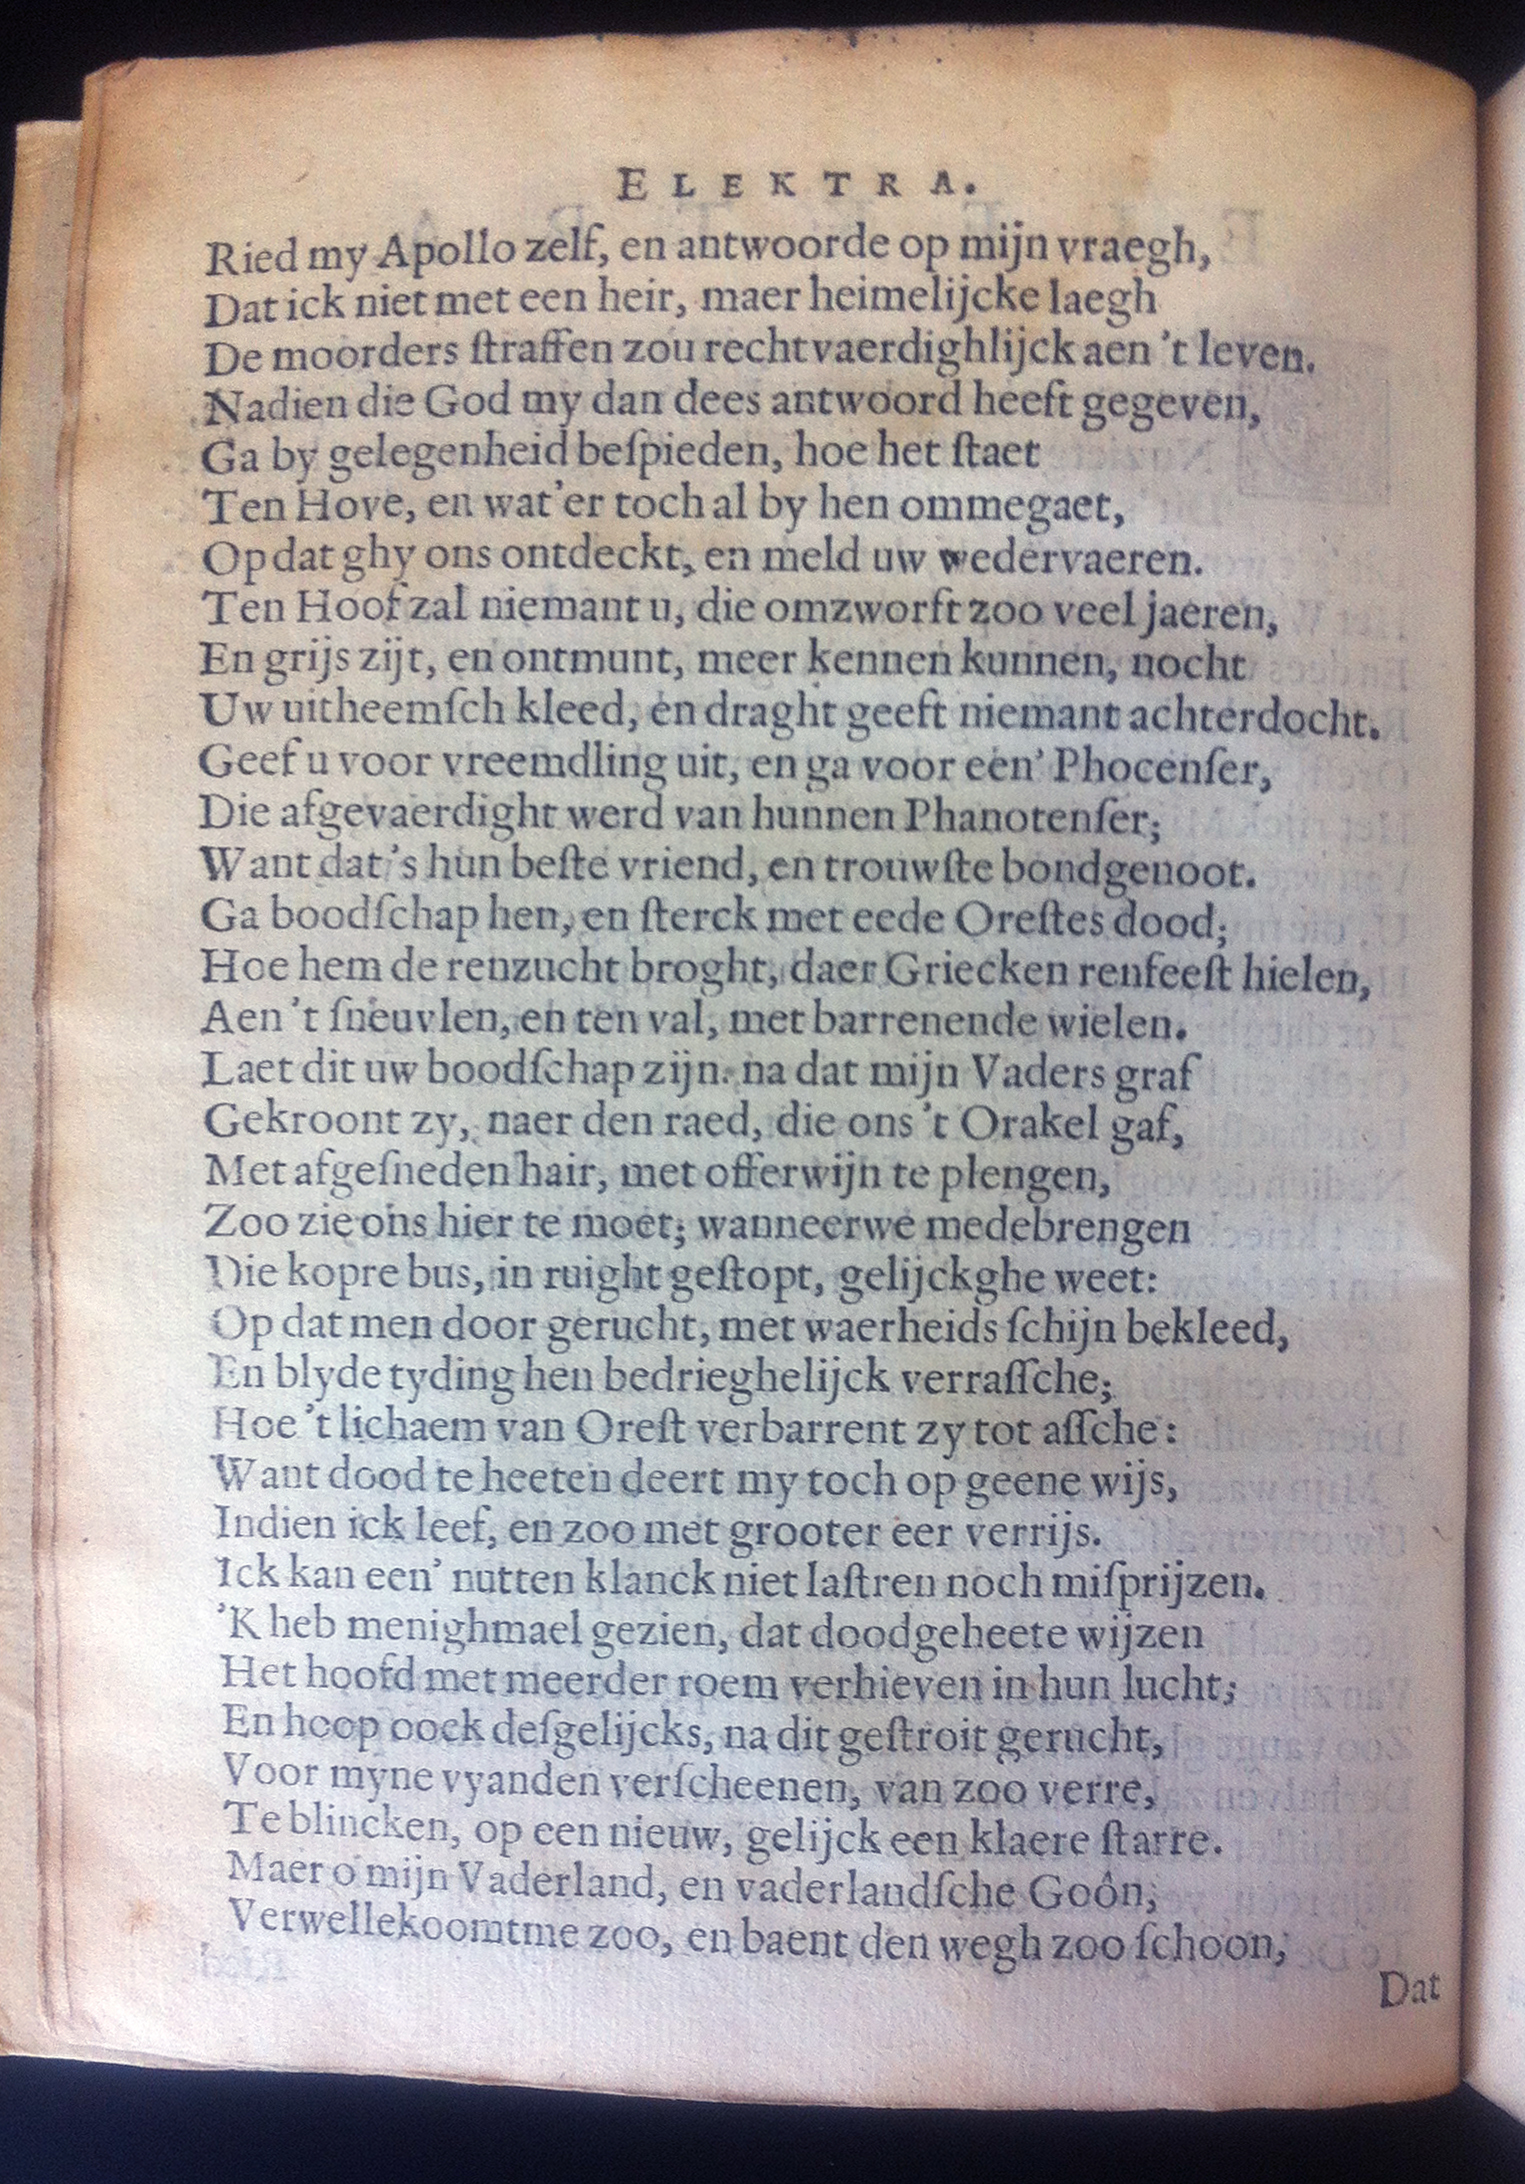 ELEKTRA.
Ried my Apollo zelf, en antwoorde op mijn vraegh,
Dat ick niet met een heir, maer heimelijcke laegh
De moorders ſtraffen zou rechtvaerdighlijck aen 't leven.
Nadien die God my dan dees antwoord heeft gegeven,
Ga by gelegenheid beſpieden, hoe het ſtaet
Ten Hove, en wat'er toch al by hen ommegaet,
Op dat ghy ons ontdeckt, en meld uw wedervaeren.
Ten Hoof zal niemant u, die omzworft zoo veel jaeren,
En grijs zijt, en ontmunt, meer kennen kunnen, nocht
Uw uitheemſch kleed, en draght geeft niemant achterdocht.
Geef u voor vreemdling uit, en ga voor een' Phocenſer,
Die afgevaerdight werd van hunnen Phanotenſer;
Want dat 's hun beſte vriend, en trouwſte bondgenoot.
Ga boodſchap hen, en ſterck met eede Oreſtes dood;
Hoe hem de renzucht broght, daer Griecken renfeeſt hielen,
Aen 't ſneuvlen, en ten val, met barrenende wielen.
Laet dit uw boodſchap zijn. na dat mijn Vaders graf
Gekroont zy, naer den raed, die ons 't Orakel gaf,
Met afgeſneden hair, met offerwijn te plengen,
Zoo zie ons hier te moet; wanneer we medebrengen
Die kopre bus, in ruight geſtopt, gelijck ghe weet:
Op dat men door gerucht, met waerheids ſchijn bekleed,
En blyde tyding hen bedrieghelijck verraſſche;
Hoe 't lichaem van Oreſt verbarrent zy tot aſſche:
Want dood te heeten deert my toch op geene wijs,
Indien ick leef, en zoo met grooter eer verrijs.
Ick kan een' nutten klanck niet laſtren noch miſprijzen.
'K heb menighmael gezien, dat doodgeheete wijzen
Het hoofd met meerder roem verhieven in hun lucht;
En hoop oock deſgelijcks, na dit geſtroit gerucht,
Voor myne vyanden verſcheenen, van zoo verre,
Te blincken, op een nieuw, gelijck een klaere ſtarre.
Maer o mijn Vaderland, en vaderlandſche Goôn,
Verwellekoomt me zoo, en baent den wegh zoo ſchoon,
Dat